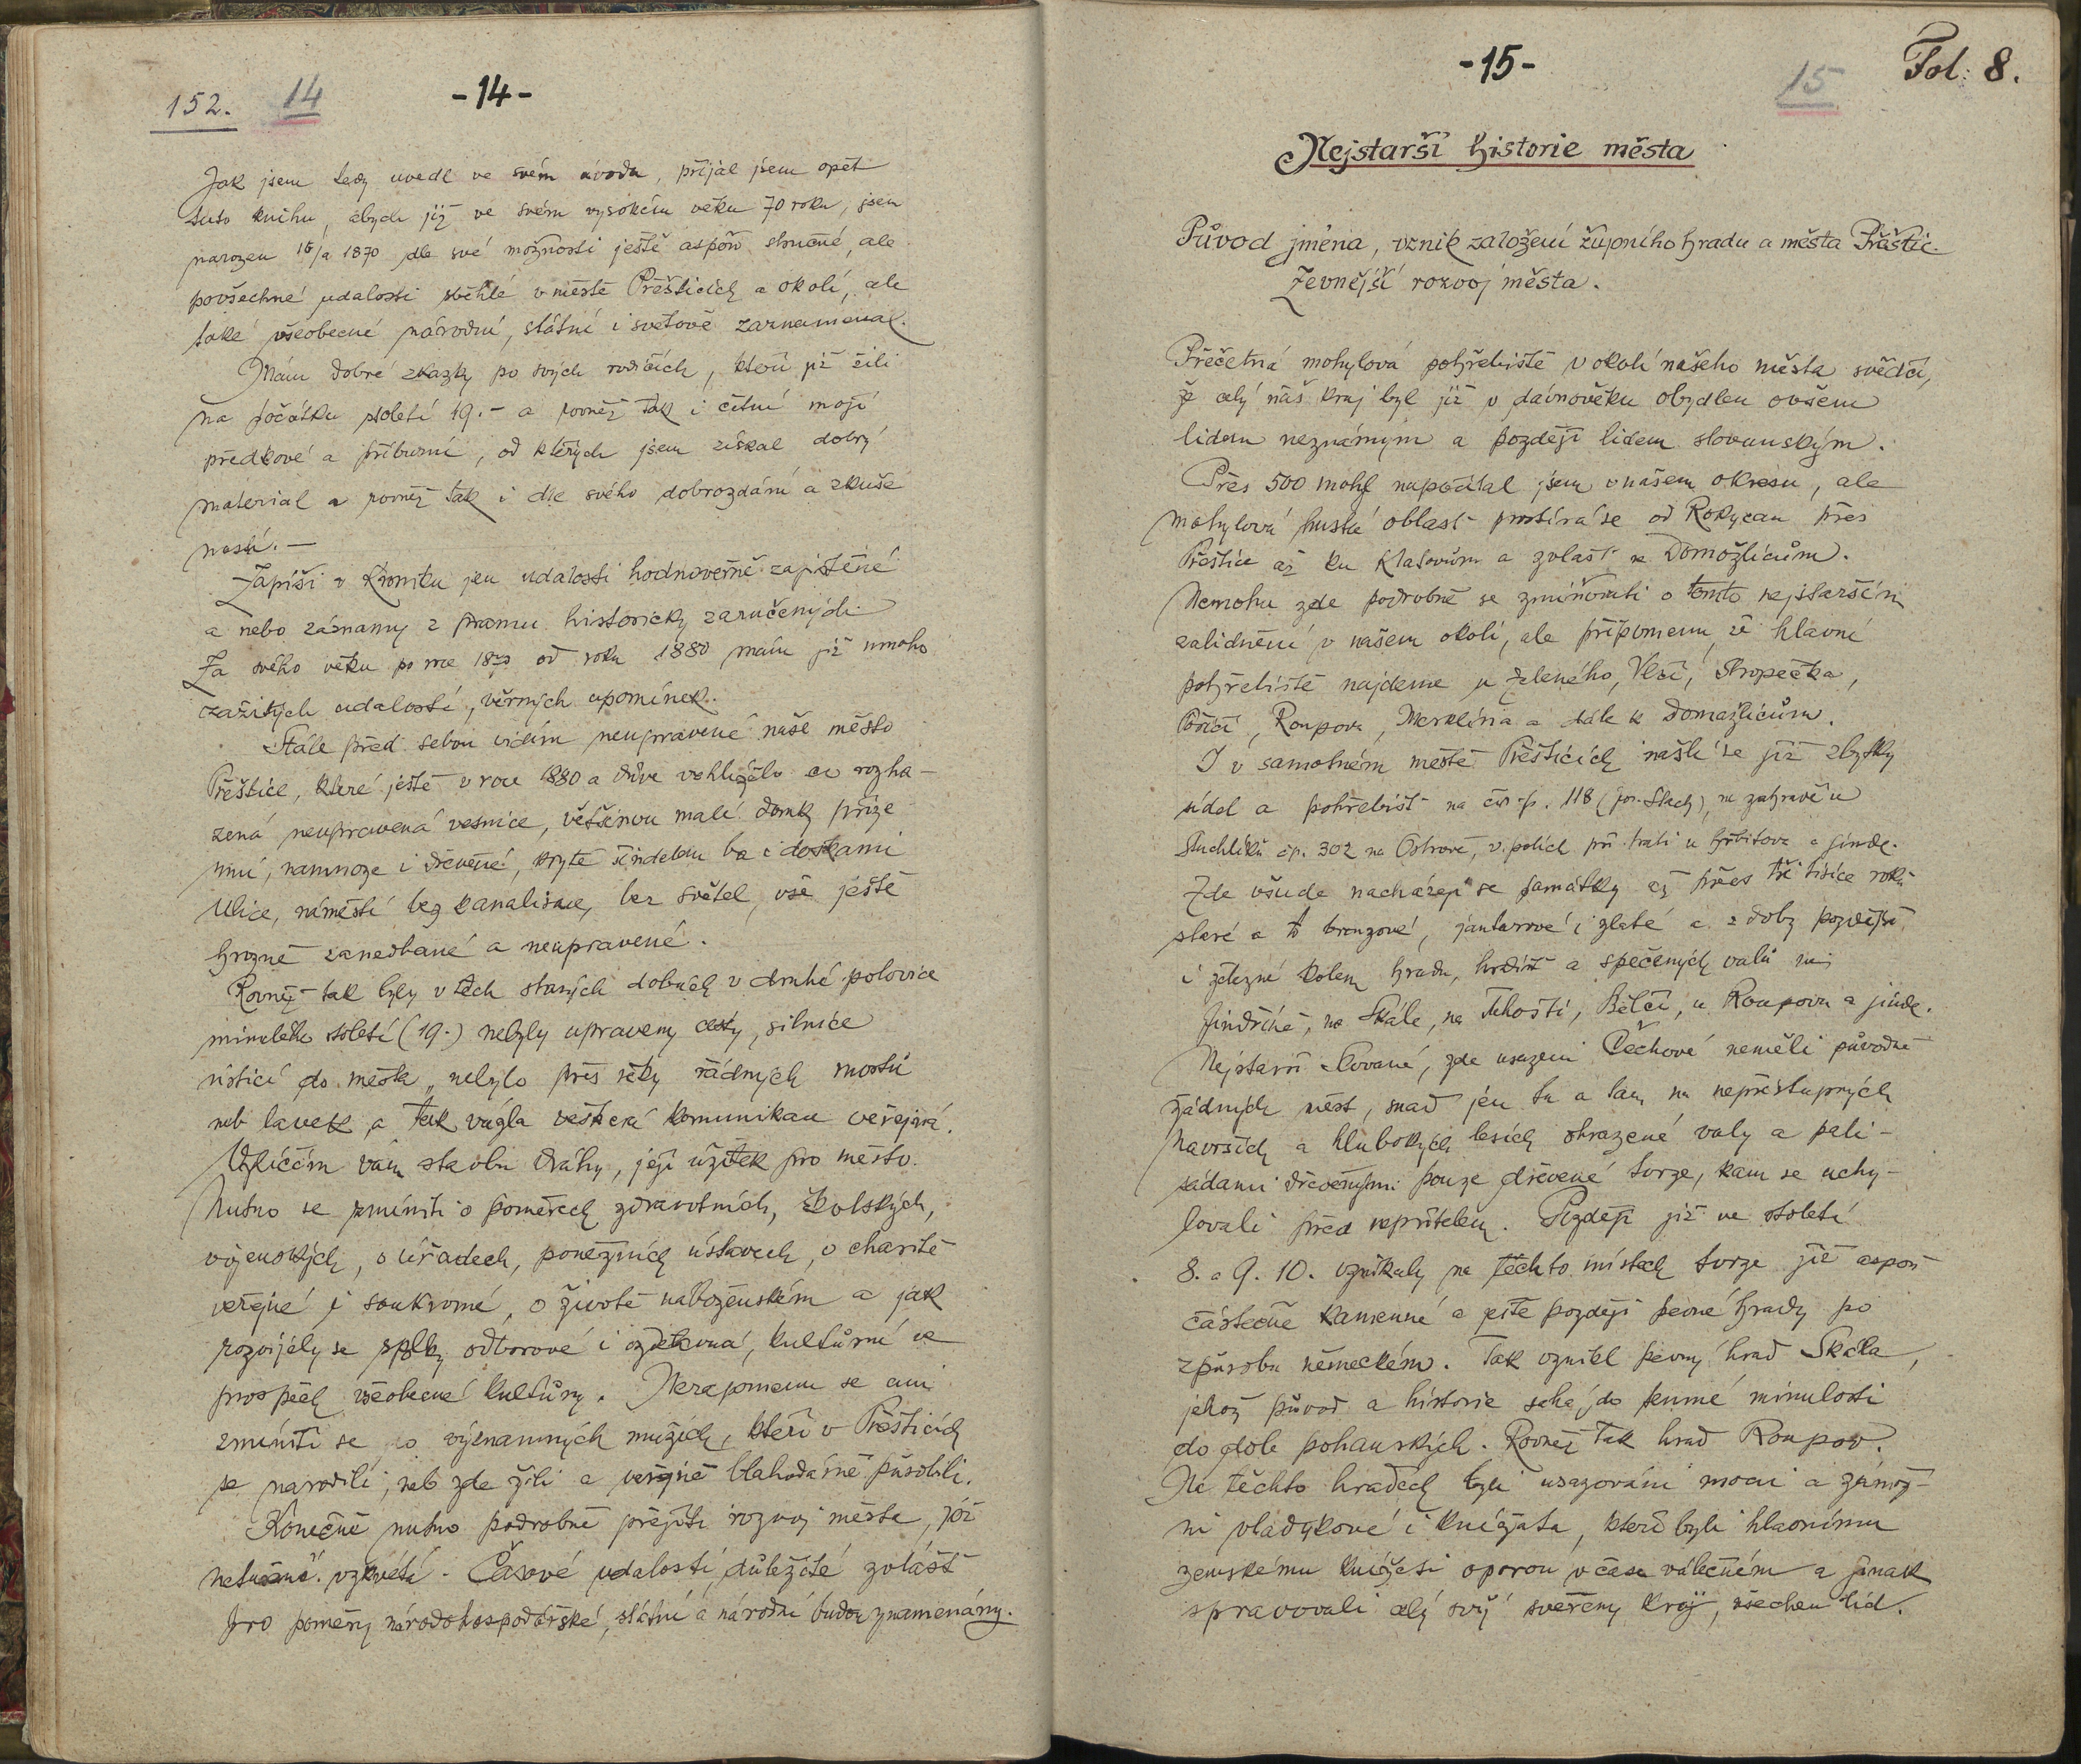 152. 14 -14-
Jak jsem tedy uvedl ve svém úvodu, přijal jsem opět
tuto knihu, abych již ve svém vysokém věku 70 roků, jsem
narozen 1870 dle své možnosti ještě aspoň stručné, ale
povšechné udalosti sběhlé v městě Přešticích a okolí, ale
také všeobecné národní, státní i světové zaznamenal.
Mám dobré zkazky po svých rodičích, kteří již žili
na počátku století 19. - a rovněž tak i četní moji
předkové a příbuzní, od kterých jsem získal dobrý
material a rovněž tak i dle svého dobrozdání a zkuše
ností. -
Zapíši v Kroniku jen udalosti hodnověrně zajištěné
a nebo záznamy z pramenu historicky zaručených.
Za svého věku po roce 1870 od roku 1880 mám již mnoho
zažitých udalostí, věrných upomínek.
Stále před sebou vidím neupravené naše město
Přeštice, které ještě v roce 1880 a dříve vyhlíželo co rozha-
zená neupravená vesnice, většinou malé domky příze
mní, namnoze i dřevěné, kryté šindelem ba i doškami
Ulice, náměstí bez kanalisace, bez světel, vše ještě
hrozně zanedbané a neupravené.
Rovněž tak byly v těch starých dobách v druhé polovice
minulého století (19.) nebyly upraveny cesty, silnice
ústící do města, nebylo přes řeky řádných mostů
neb lavek a tak vázla veškerá komunikace veřejná.
Vylíčím vám stavbu dráhy, její užitek pro město.
Nutno se zmíniti o poměrech zdravotních, školských,
vojenských, o úřadech, peněžních ústavech, o charitě
veřejné i soukromé, o životě naboženském a jak
rozvijely se spolky odborové i vzdělavací, kultůrní ve
prospěch všeobecné kultůry. Nezapomenu se ani
zmíniti se o významných mužích, kteří v Přešticích
se narodili, neb zde žili a veřejně blahodárně působili.
Konečně nutno podrobně přejíti rozvoj města, jež
netušeně vzkvétá - Časové udalosti, důležité zvlášť
pro poměry národohospodářské, státní a národní budou znamenány.
-15- 15 Fol: 8.
Nejstarší historie města
Původ jména, vznik založení župního hradu a města Přeštic.
Zevnější rozvoj města.
Přečetná mohylová pohřebiště v okolí našeho města svědčí,
že celý náš kraj byl již v dávnověku obydlen ovšem
lidem neznámým a později lidem slovanským.
Přes 500 mohyl napočítal jsem v našem okresu, ale
mohylová hustá oblast prostírá se od Rokycan přes
Přeštice až ku Klatovům a zvlášť k Domažlicům.
Nemohu zde podrobně se zmiňovati o tomto nejstarším
zalidnění v našem okolí, ale připomenu, že hlavní
pohřebiště najdeme u Zeleného, Vlčí, Kropečka,
Poříčí, Roupova, Merklína a dále k Domažlicům.
I v samotném městě Přešticích našli se již zbytky
sídel a pohřebišť na čís. p. 118 (Jos. Stach), na zahradě u
Suchlíků čp. 302 na Ostrově, v polích při trati u hřbitova a jinde.
Zde všude nacházejí se památky až přes tři tisíce roků
staré a to bronzové, jantarové i zlaté a z doby pozdější
i železné kolem hradů, hradišť a spečených valů na
Jindřině, na Skále, na Tuhošti, Bělči, u Roupova a jinde.
Nejstarší Slované, zde usazení Čechové neměli původně
žádných měst, snad jen tu a tam na nepřístupných
navrších a hlubokých lesích ohrazené valy a pali-
sádami dřevěnými pouze dřevěné tvrze, kam se uchy-
lovali před nepřítelem. Později již ve století
8. a 9. 10. vznikaly na těchto místech tvrze již aspoň
částečně kamenné a ještě později pevné hrady po
způsobu německém. Tak vznikl pevný hrad Skála,
jehož původ a historie sahá do temné minulosti
do dob pohanských. Rovněž tak hrad Roupov.
Na těchto hradech byli usazováni mocní a zámož-
ní vladykové i knížata, kteří byli hlavnímu
zemskému knížeti oporou v čase válečném a jinak
spravovali celý svůj svěřený kraj, všechen lid.